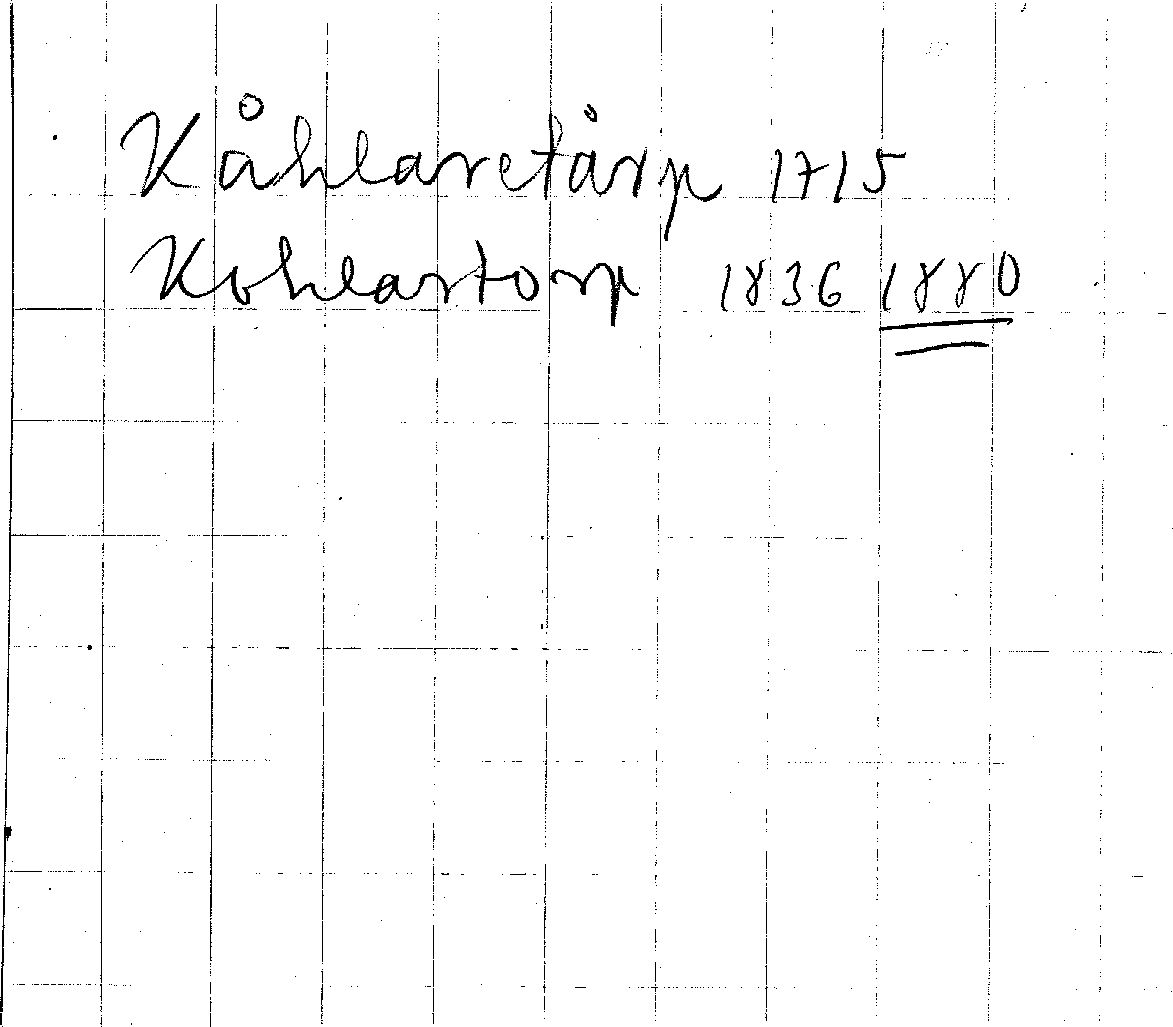 Kåhlaretårp 1715
Kohlartorp 1836 1880